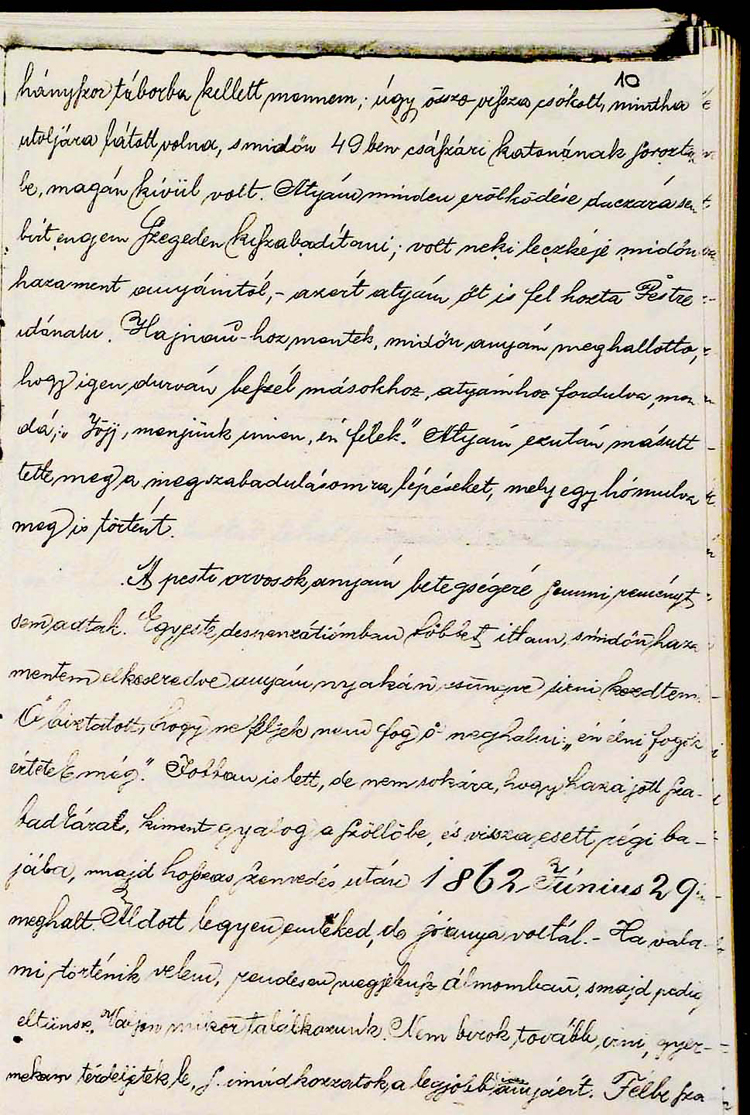 10
hányszor táborba kellett mennem; úgy össze vissza csókolt, mintha
utoljára látott volna, s midőn 49 ben császári katonának sorozta
be, magán kívül volt. Atyám minden erőlködése daczára sem
birt engem Szegeden kiszabadítani; volt neki leczkéje midőn
haza ment anyámtól, – azért atyám őt is fel hozta Pestre
utánam. Hajnau-hoz mentek, midőn anyám meghallotta,
hogy igen durván beszél másokhoz, atyámhoz fordulva, mon
dá; „Jőjj, menjünk innen, én félek." Atyám ezután másutt
tette meg a megszabadulásomra lépéseket, mely egy hó mulva
meg is történt.
A pesti orvosok anyám betegségére semmi reményt
sem adtak. Egy este, desperátiómban többet ittam, s midőn haza
mentem elkeseredve anyám nyakán csüngve sírni kezdtem.
Ő biztatott, hogy ne féljek nem fog ő meghalni: „én élni fogok
értetek még." Jobban is lett, de nem sokára, hogy haza jött Sza-
badkára, kiment gyalog a szőllőbe, és vissza esett régi ba-
jába, majd hosszas szenvedés után 1862 Június 29
meghalt. Áldott legyen emléked, de jó anya voltál. – Ha vala-
mi történik velem, rendesen megjelensz álmomban, s majd pedig
eltünsz. Vajjon mikor találkozunk. Nem birok tovább írni, gyer-
mekem térdeljetek le, s imádkozzatok a legjobb anyáért. Félbe sza